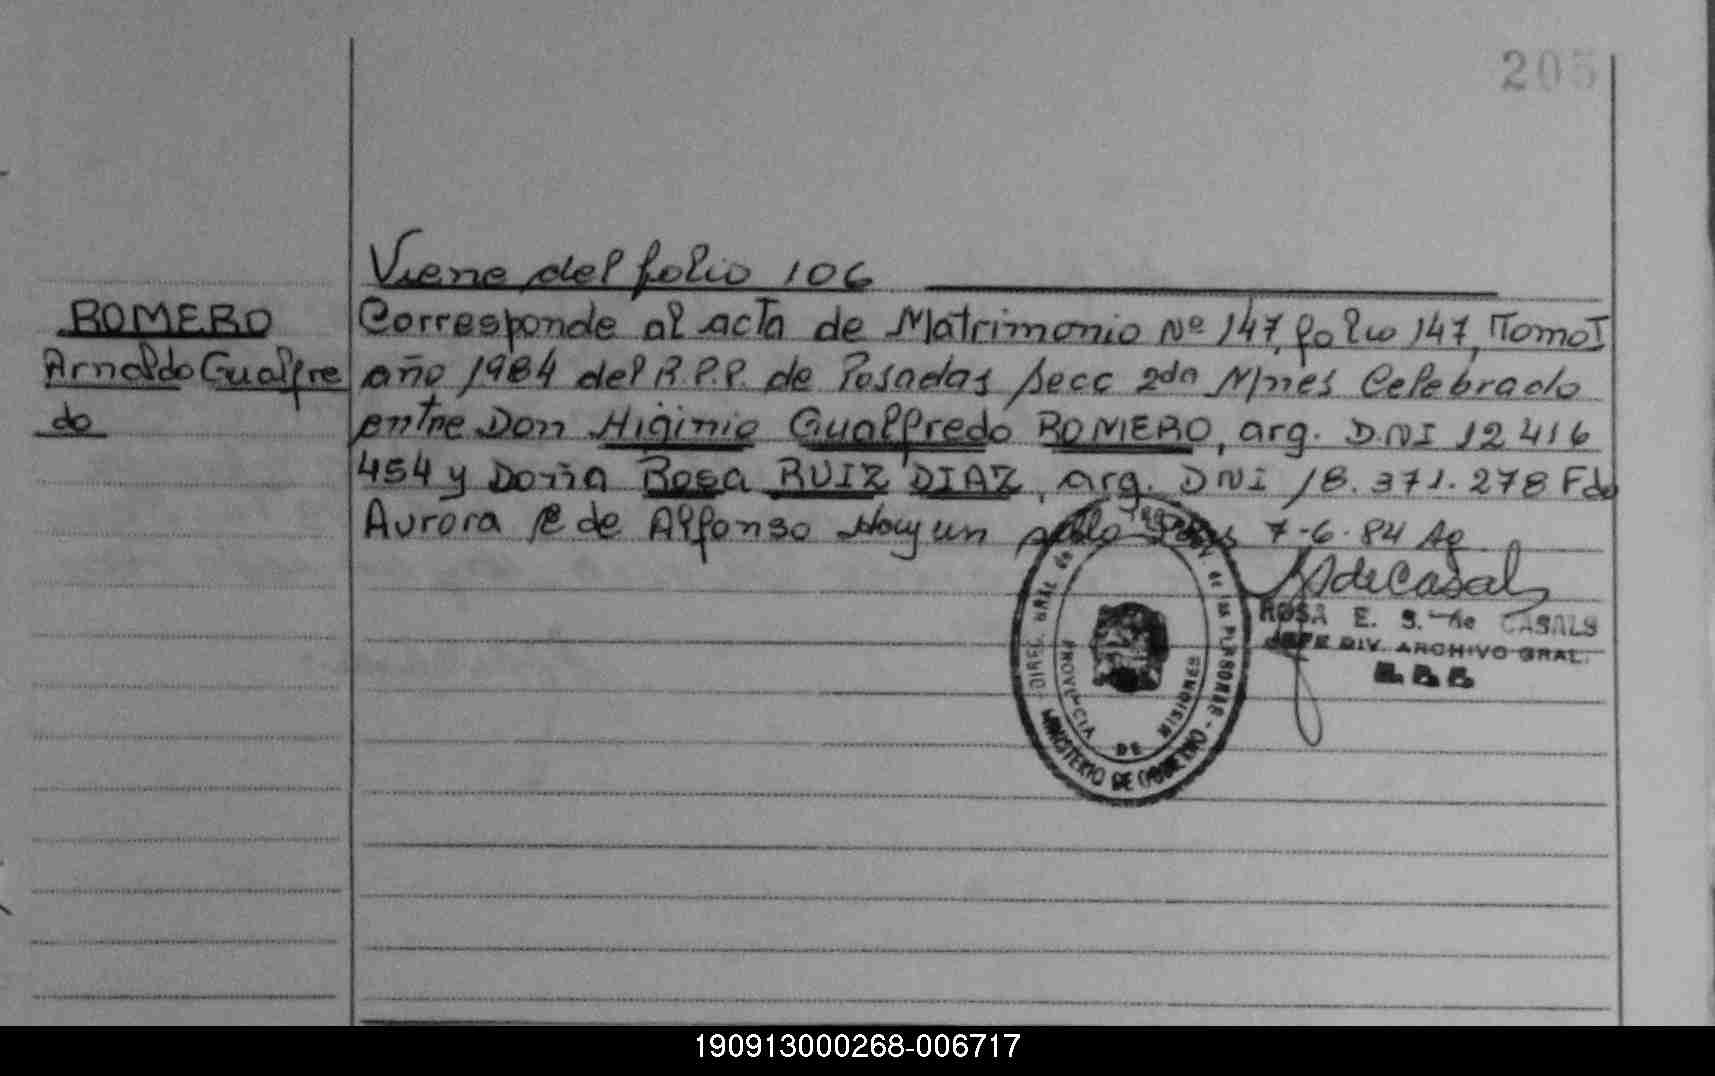 205
Viene del folio 106
ROMERO
Arnaldo Gualfre
do
Corresponde al acta de Matrimonio Nº 147, folio 147, Tomo I
año 1984 del R.P.P. de Posadas secc 2da Mnes Celebrado
entre Don Higinio Gualfredo ROMERO, arg. D.N.I 12 416
454 y Doña Rosa RUIZ DIAZ, arg. DNI 18.371.278 Fdo
Aurora de Alfonso Hay un sello 7-6-84
ROSA E. S. de CASALS
JEFE DIV. ARCHIVO GRAL.
PROVINCIA DE MISIONES
MINISTERIO DE GOBIERNO
190913000268-006717